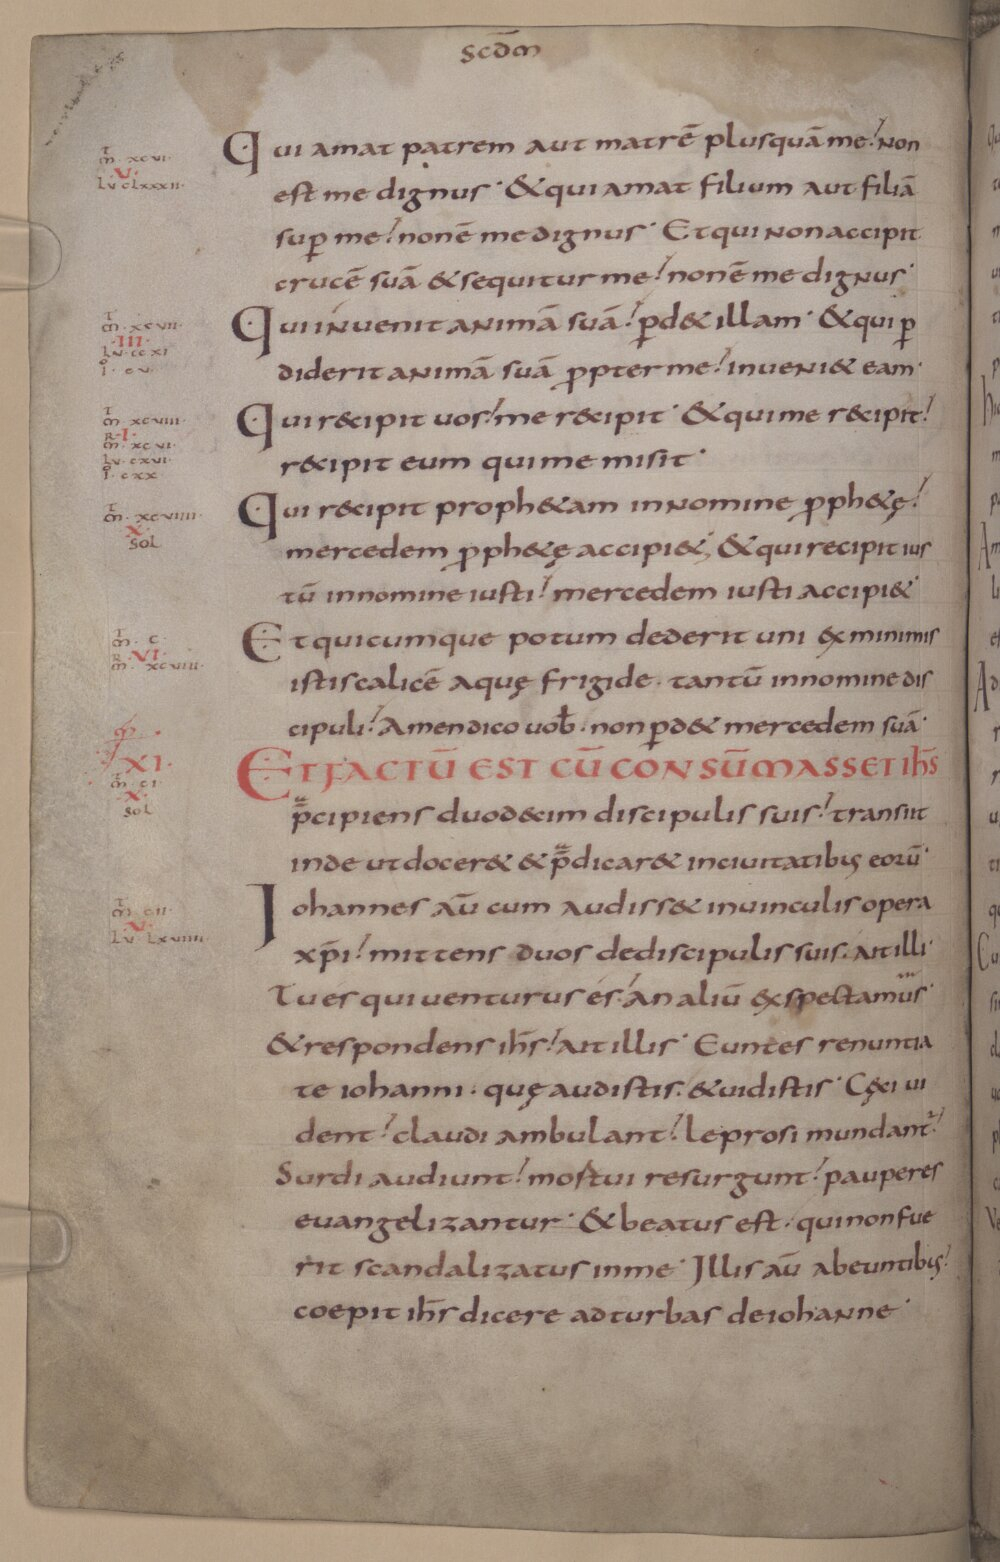 scdm̄
Qui amat patrem aut matrē plusquā me. non
est me dignus. &qui amat filium aut filiā
sup̄ me. nonē me dignus. Et qui non accipit
crucē suā &sequitur me. nonē me dignus.
Qui inuenit animā suā. p̄d& illam. &qui p̄
diderit animā suā ꝓpter me. inueni& eam.
Qui r&cipit uos. me r&cipit. &qui me r&cipit.
r&cipit eum qui me misit.
Qui r&cipit proph&am in nomine ꝓph&ę.
mercedem ꝓph&ę accipi&; &qui recipit ius
tū in nomine iusti. mercedem iusti accipi&.
Et quicumque potum dederit uni ex minimis
istis calicē aquę frigide. tantū in nomine dis
cipuli. Amen dico uob̄. non p̄d& mercedem suā.
ET FACTŪ EST CŪ CONSŪMASSET ih̄s
p̄cipiens duodecim discipulis suis. transiit
inde ut docer& & p̄dicar& in ciuitatibꝫ eorū.
Iohannes aū cum audiss& in uinculis opera
xp̄i. mittens duos de discipulis suis. ait illi.
Tu es qui uenturus es. an aliū expectamus.
&respondens ih̄s. ait illis. Euntes renuntia
te iohanni. quę audistis. &uidistis. Cęci ui
dent. claudi ambulant. leprosi mundant̄.
Surdi audiunt. mortui resurgunt. pauperes
euangelizantur. &beatus est. qui non fue
rit scandalizatus in me. Illis aū abeuntibꝫ.
coepit ih̄s dicere ad turbas de iohanne.
m̄. xcvi.
V.
Lv clxxxii.
m̄. xcvii.
.III.
Lv. ccxi
I. cv.
m̄. xcviii.
R. I.
m̄. xcvi.
Lv. cxvi.
I. cxx.
m̄. xcviiii.
X.
Sol
m̄. c.
VI.
m̄. xcviii.
XI.
m̄. ci.
X.
Sol
m̄. cii.
V.
Lv. Lxviiii.